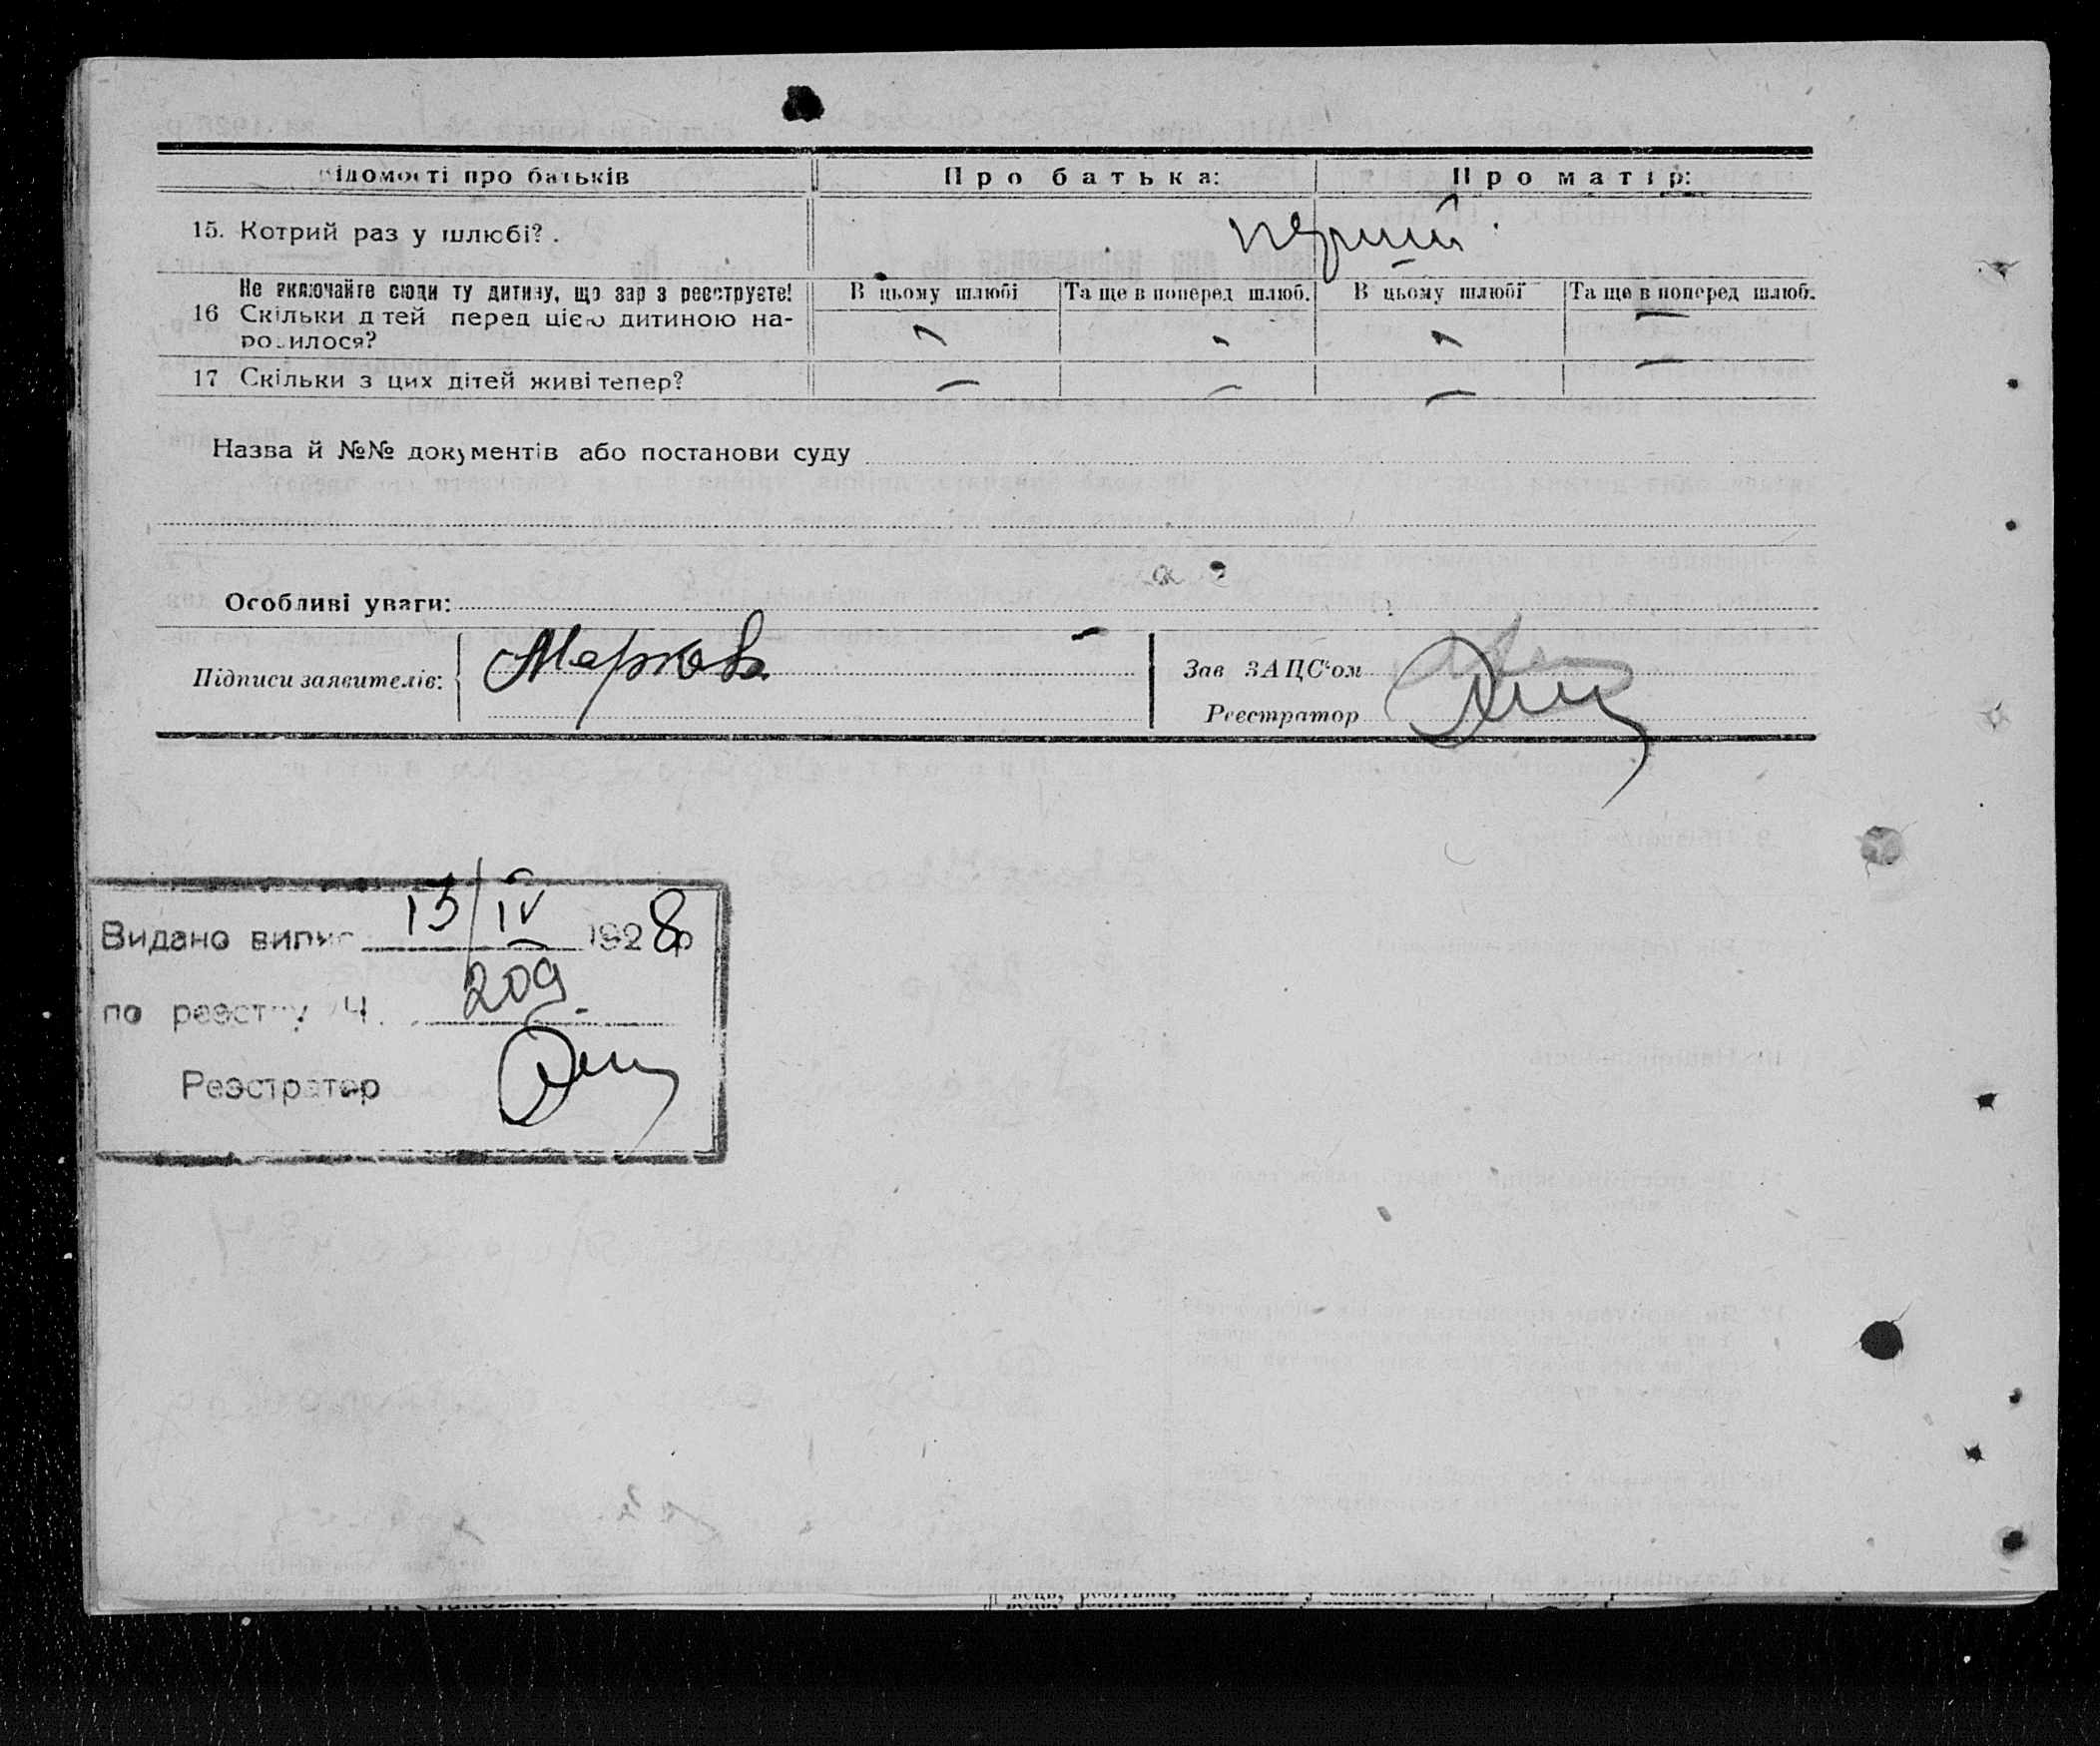 Відомості про батьків Про батька: Про матір:
15. Котрий раз у шлюбі? . перший
Не включайте сюди ту дитину, що зар з реєструєте! В цьому шлюбі Та ще в поперед шлюб. В цьому шлюбі Та ще в поперед шлюб.
16 Скільки дітей перед цією дитиною на-
родилося? - - - -
17 Скільки з цих дітей живі тепер? - - - -
Назва й №№ документів або постанови суду
Особливі уваги:
Підписи заявителів: Маркова
Зав ЗАЦС'ом
Реєстратор
Видано випис 13/IV 1928
по реєстру Ч. 209.
Реэстратор